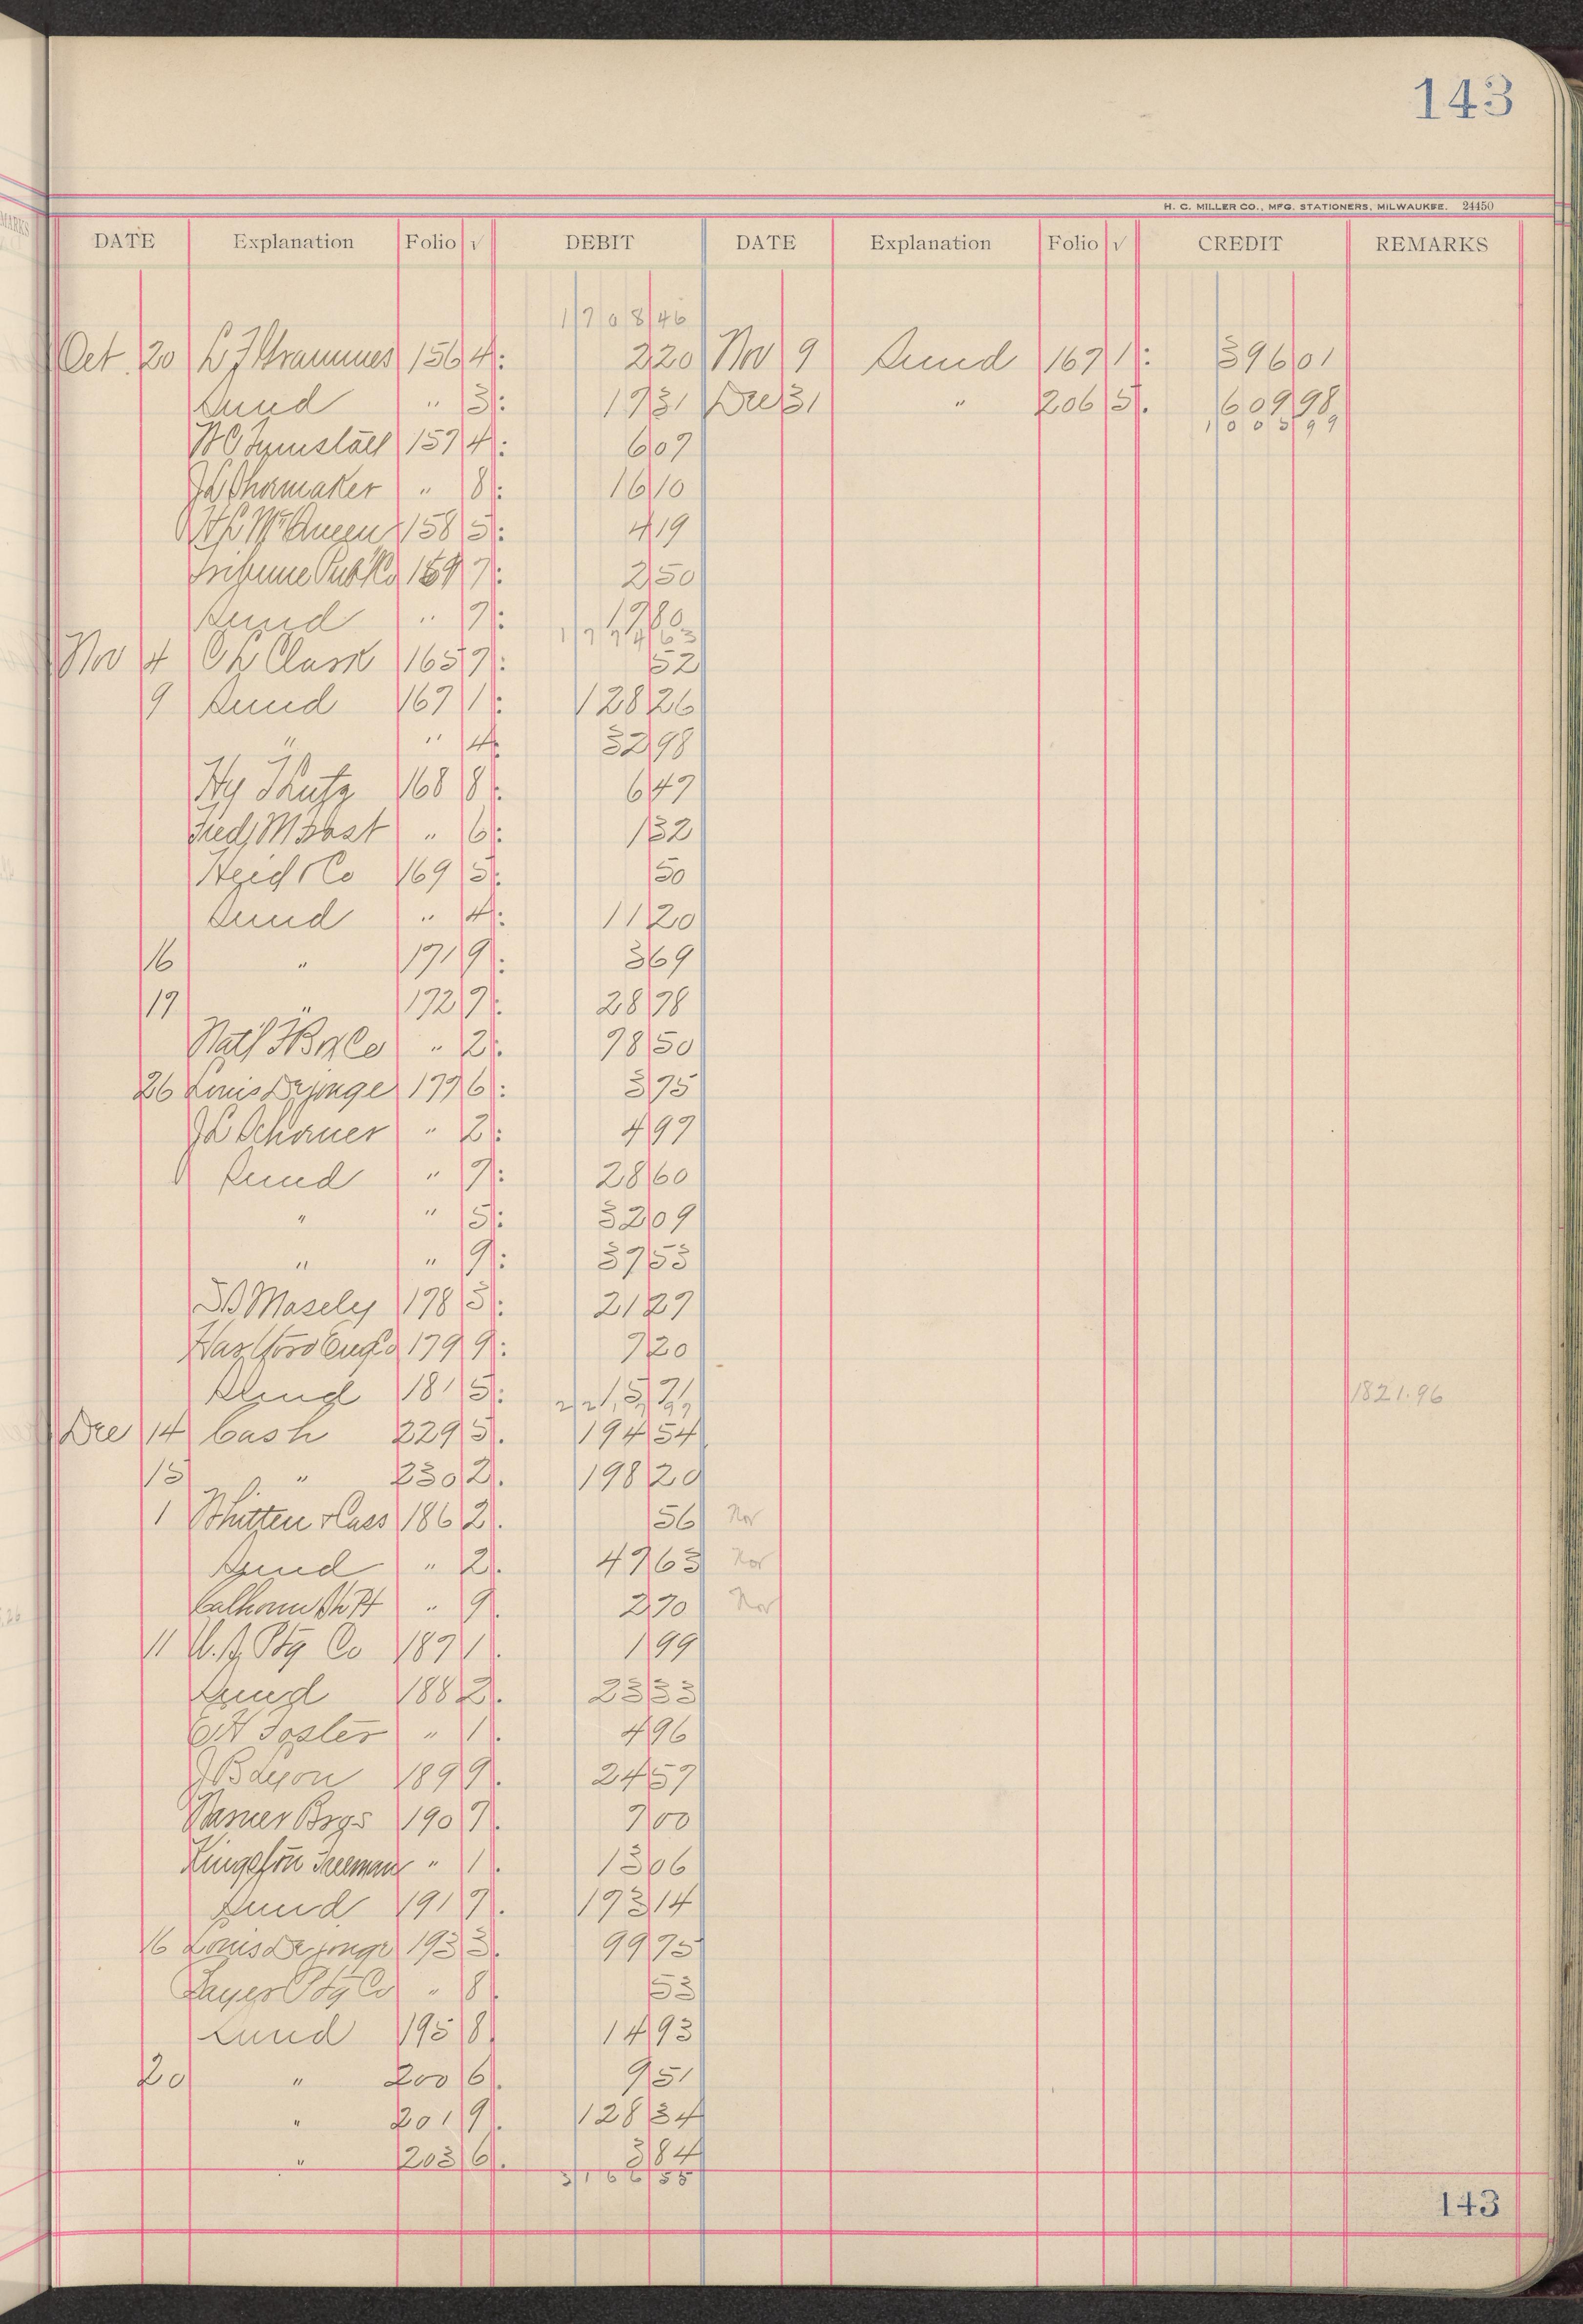 143
H. C. MILLER CO., MFG. STATIONERS, MILWAUKEE. 24450
DATE Explanation Folio √ DEBIT DATE Explanation Folio √ CREDIT REMARKS
1708 46
Oct 20 156 4 2 20 Nov 9 Sund 167 1 396 01
Sund " 3 17 31 Dec 31 " 206 5 609 98
1005 99
157 4 6 07
" 8 16 10
McQueen 158 5 4 19
Tribune Pub Co 159 7 2 50
Sund " 7 17 80
1774 63
Nov 4 165 7 52
9 Sund 167 1 128 26
" " 4 32 98
168 8 6 47
" 6 1 32
169 5 50
Sund " 4 11 20
16 " 171 9 3 69
17 " 172 7 28 78
" 2 78 50
26 Louis Dejonge 177 6 3 75
" 2 4 97
Sund " 7 28 60
" " 5 32 09
" " 9 37 53
Masely 178 3 21 27
179 9 7 20
Sund 181 5 1821.96
Dec 14 Cash 229 5 194 54
15 " 230 2 198 20
1 Whitten & Cass 186 2 56 Nov
Sund " 2 47 63 Nov
Calhoun " 9 2 70 Nov
11 U.S. Ptg Co 187 1 1 99
Sund 188 2 23 33
Foster " 1 4 96
189 9 24 57
Warner Bros 190 7 7 00
Kingston Freeman " 1 13 06
Sund 191 7 173 14
16 Louis Dejonge 193 3 99 75
Sayer Ptg Co " 8 53
Sund 195 8 14 93
20 " 200 6 9 51
" 201 9 128 34
" 203 6 3 84
3166 55
143